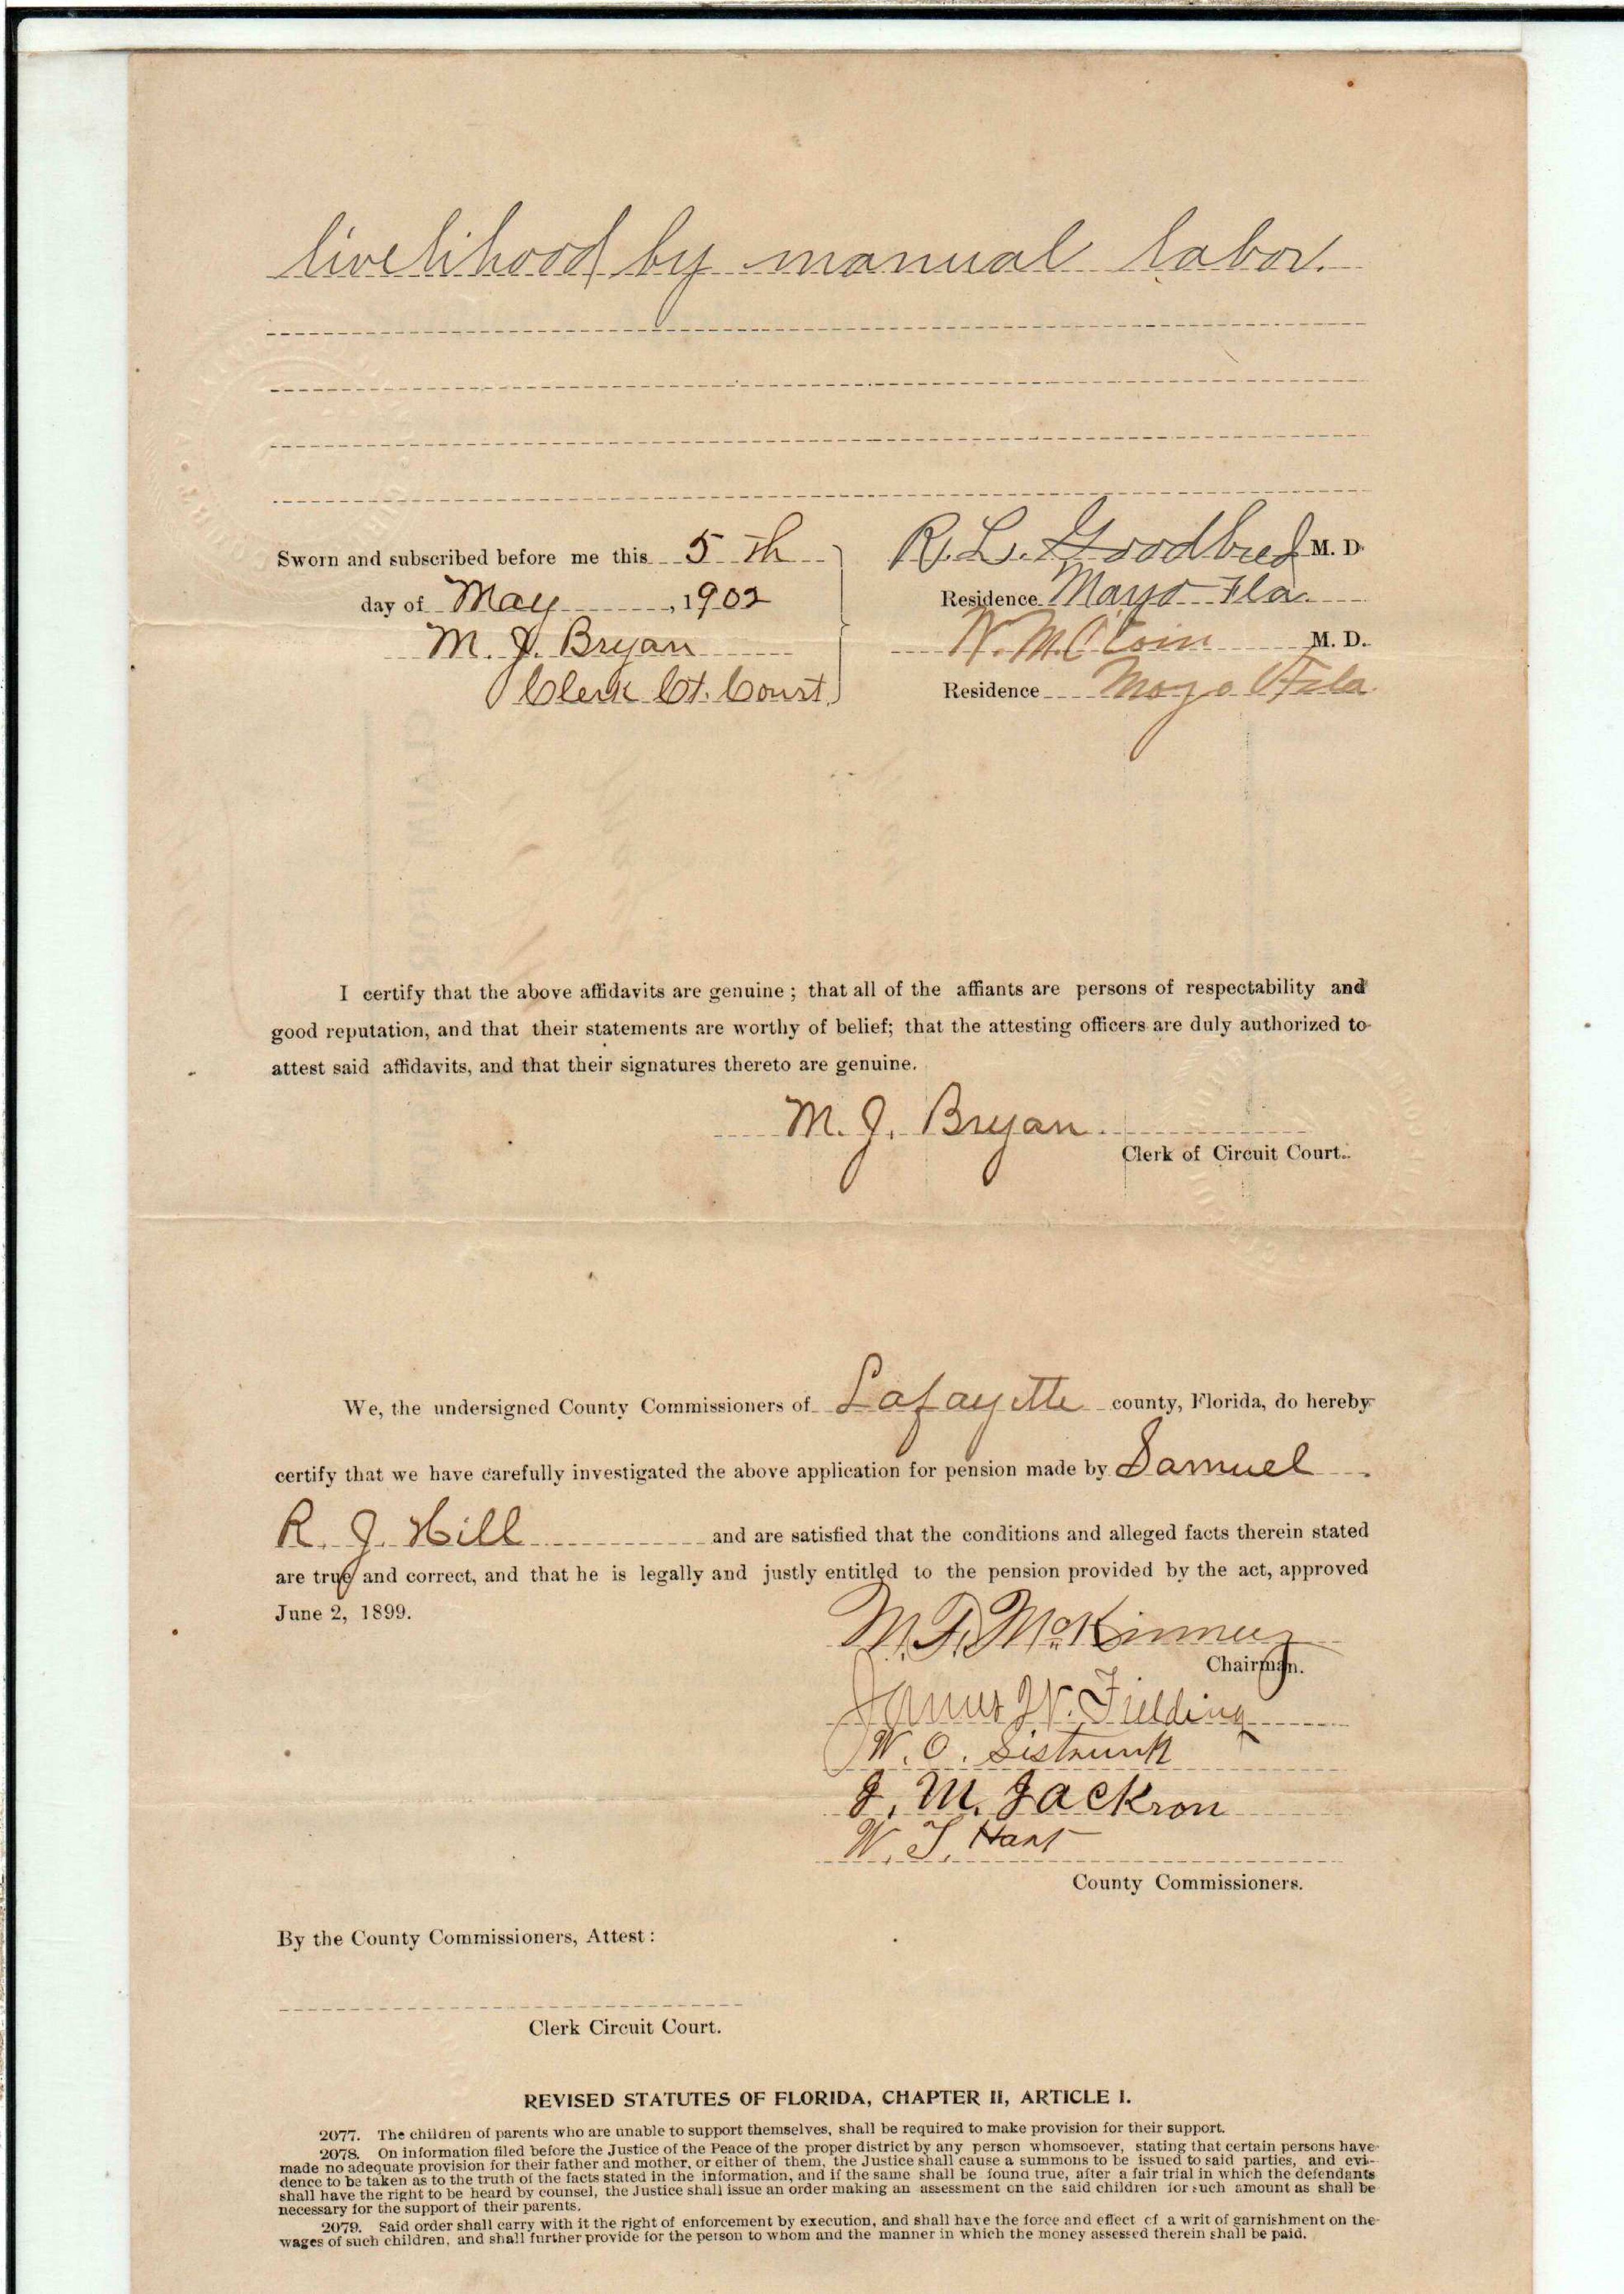 livelihood by manual labor.
Sworn and subscribed before me this 5th
day of May, 1902
M. J. Bryan
Clerk Ct. Court.
R. L. Goodbred M. D.
Residence Mayo Fla.
M. D.
Residence Mayo Fla
I certify that the above affidavits are genuine; that all of the affiants are persons of respectability and
good reputation, and that their statements are worthy of belief; that the attesting officers are duly authorized to
attest said affidavits, and that their signatures thereto are genuine.
M. J. Bryan
Clerk of Circuit Court.
We, the undersigned County Commissioners of Lafayette county, Florida, do hereby
certify that we have carefully investigated the above application for pension made by Samuel
R. J. Hill and are satisfied that the conditions and alleged facts therein stated
are true and correct, and that he is legally and justly entitled to the pension provided by the act, approved
June 2, 1899.
M. F. McKinney
Chairman.
James W. Fielding
W. O. Sistrunk
J. M. Jackson
W. T. Hart
County Commissioners.
By the County Commissioners, Attest:
Clerk Circuit Court.
REVISED STATUTES OF FLORIDA, CHAPTER II, ARTICLE I.
2077. The children of parents who are unable to support themselves, shall be required to make provision for their support.
2078. On information filed before the Justice of the Peace of the proper district by any person whomsoever, stating that certain persons have
made no adequate provision for their father and mother, or either of them, the Justice shall cause a summons to be issued to said parties, and evi-
dence to be taken as to the truth of the facts stated in the information, and if the same shall be found true, after a fair trial in which the defendants
shall have the right to be heard by counsel, the Justice shall issue an order making an assessment on the said children for such amount as shall be
necessary for the support of their parents.
2079. Said order shall carry with it the right of enforcement by execution, and shall have the force and effect of a writ of garnishment on the
wages of such children, and shall further provide for the person to whom and the manner in which the money assessed therein shall be paid.